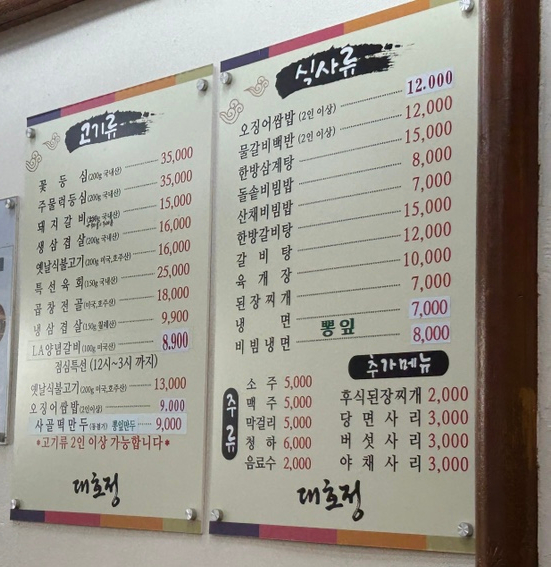 고기류
꽃등심(200g 국내산) 35,000
주물럭등심(200g 국내산) 35,000
돼지갈비 국내산) 15,000
생삼겹살(200g 국내산) 16,000
옛날식불고기(200g 미국,호주산) 16,000
특선육회(150g 국내산) 25,000
곱창전골(미국,호주산) 18,000
냉삼겹살(150g 칠레산) 9,900
LA양념갈비(100g 미국산) 8,900
점심특선 (12시~3시 까지)
옛날식불고기(200g 미국,호주산) 13,000
오징어쌈밥(2인이상) 9,000
사골떡만두(동절기) 뽕잎만두 9,000
*고기류 2인 이상 가능합니다*
대호정
식사류
오징어쌈밥 (2인 이상) 12,000
물갈비백반 (2인 이상) 12,000
한방삼계탕 15,000
돌솥비빔밥 8,000
산채비빔밥 7,000
한방갈비탕 15,000
갈비탕 12,000
육개장 10,000
된장찌개 7,000
냉면 뽕잎 7,000
비빔냉면 8,000
주류
소주 5,000
맥주 5,000
막걸리 5,000
청하 6,000
음료수 2,000
추가메뉴
후식된장찌개 2,000
당면사리 3,000
버섯사리 3,000
야채사리 3,000
대호정